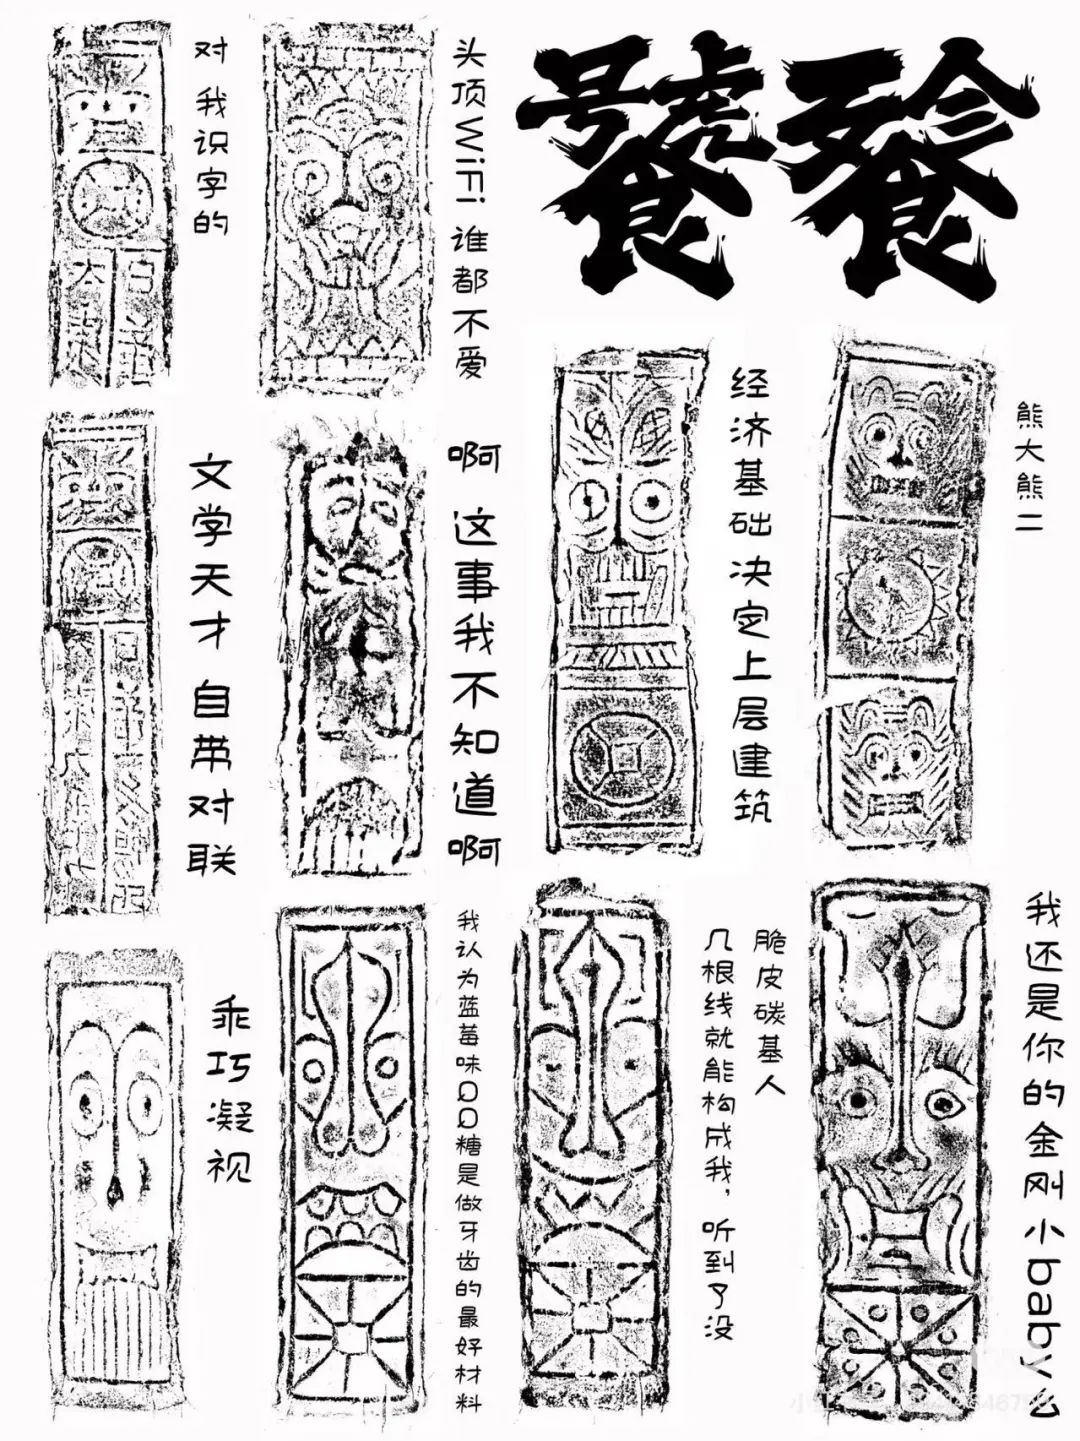 饕餮
对 我识字的
头顶WiFi 谁都不爱
经济基础决定上层建筑
熊大熊二
文学天才 自带对联
啊 这事我不知道啊
乖巧凝视
我认为蓝莓味QQ糖是做牙齿的最好材料
脆皮碳基人
几根线就能构成我，听到了没
我还是你的金刚小baby么